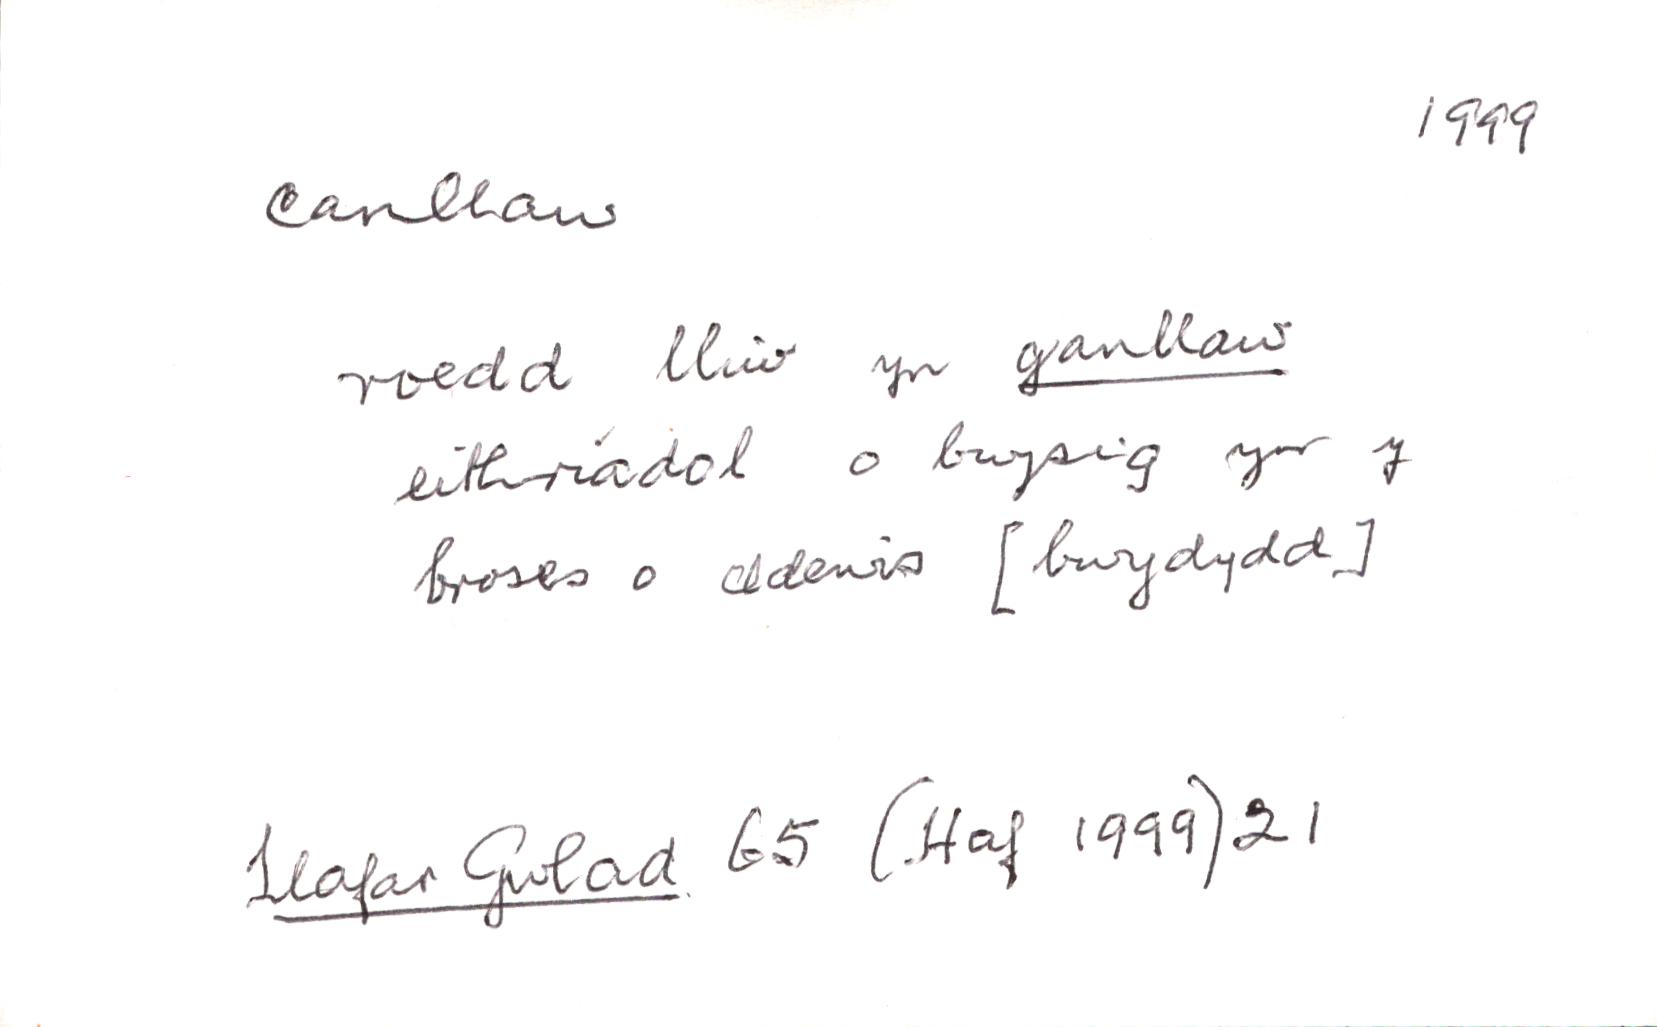 1999
canllaw
roedd lliw yn ganllaw
eithriadol o bwysig yn y
broses o ddewis [bwydydd]
Llafar Gwlad 65 (Haf 1999) 21